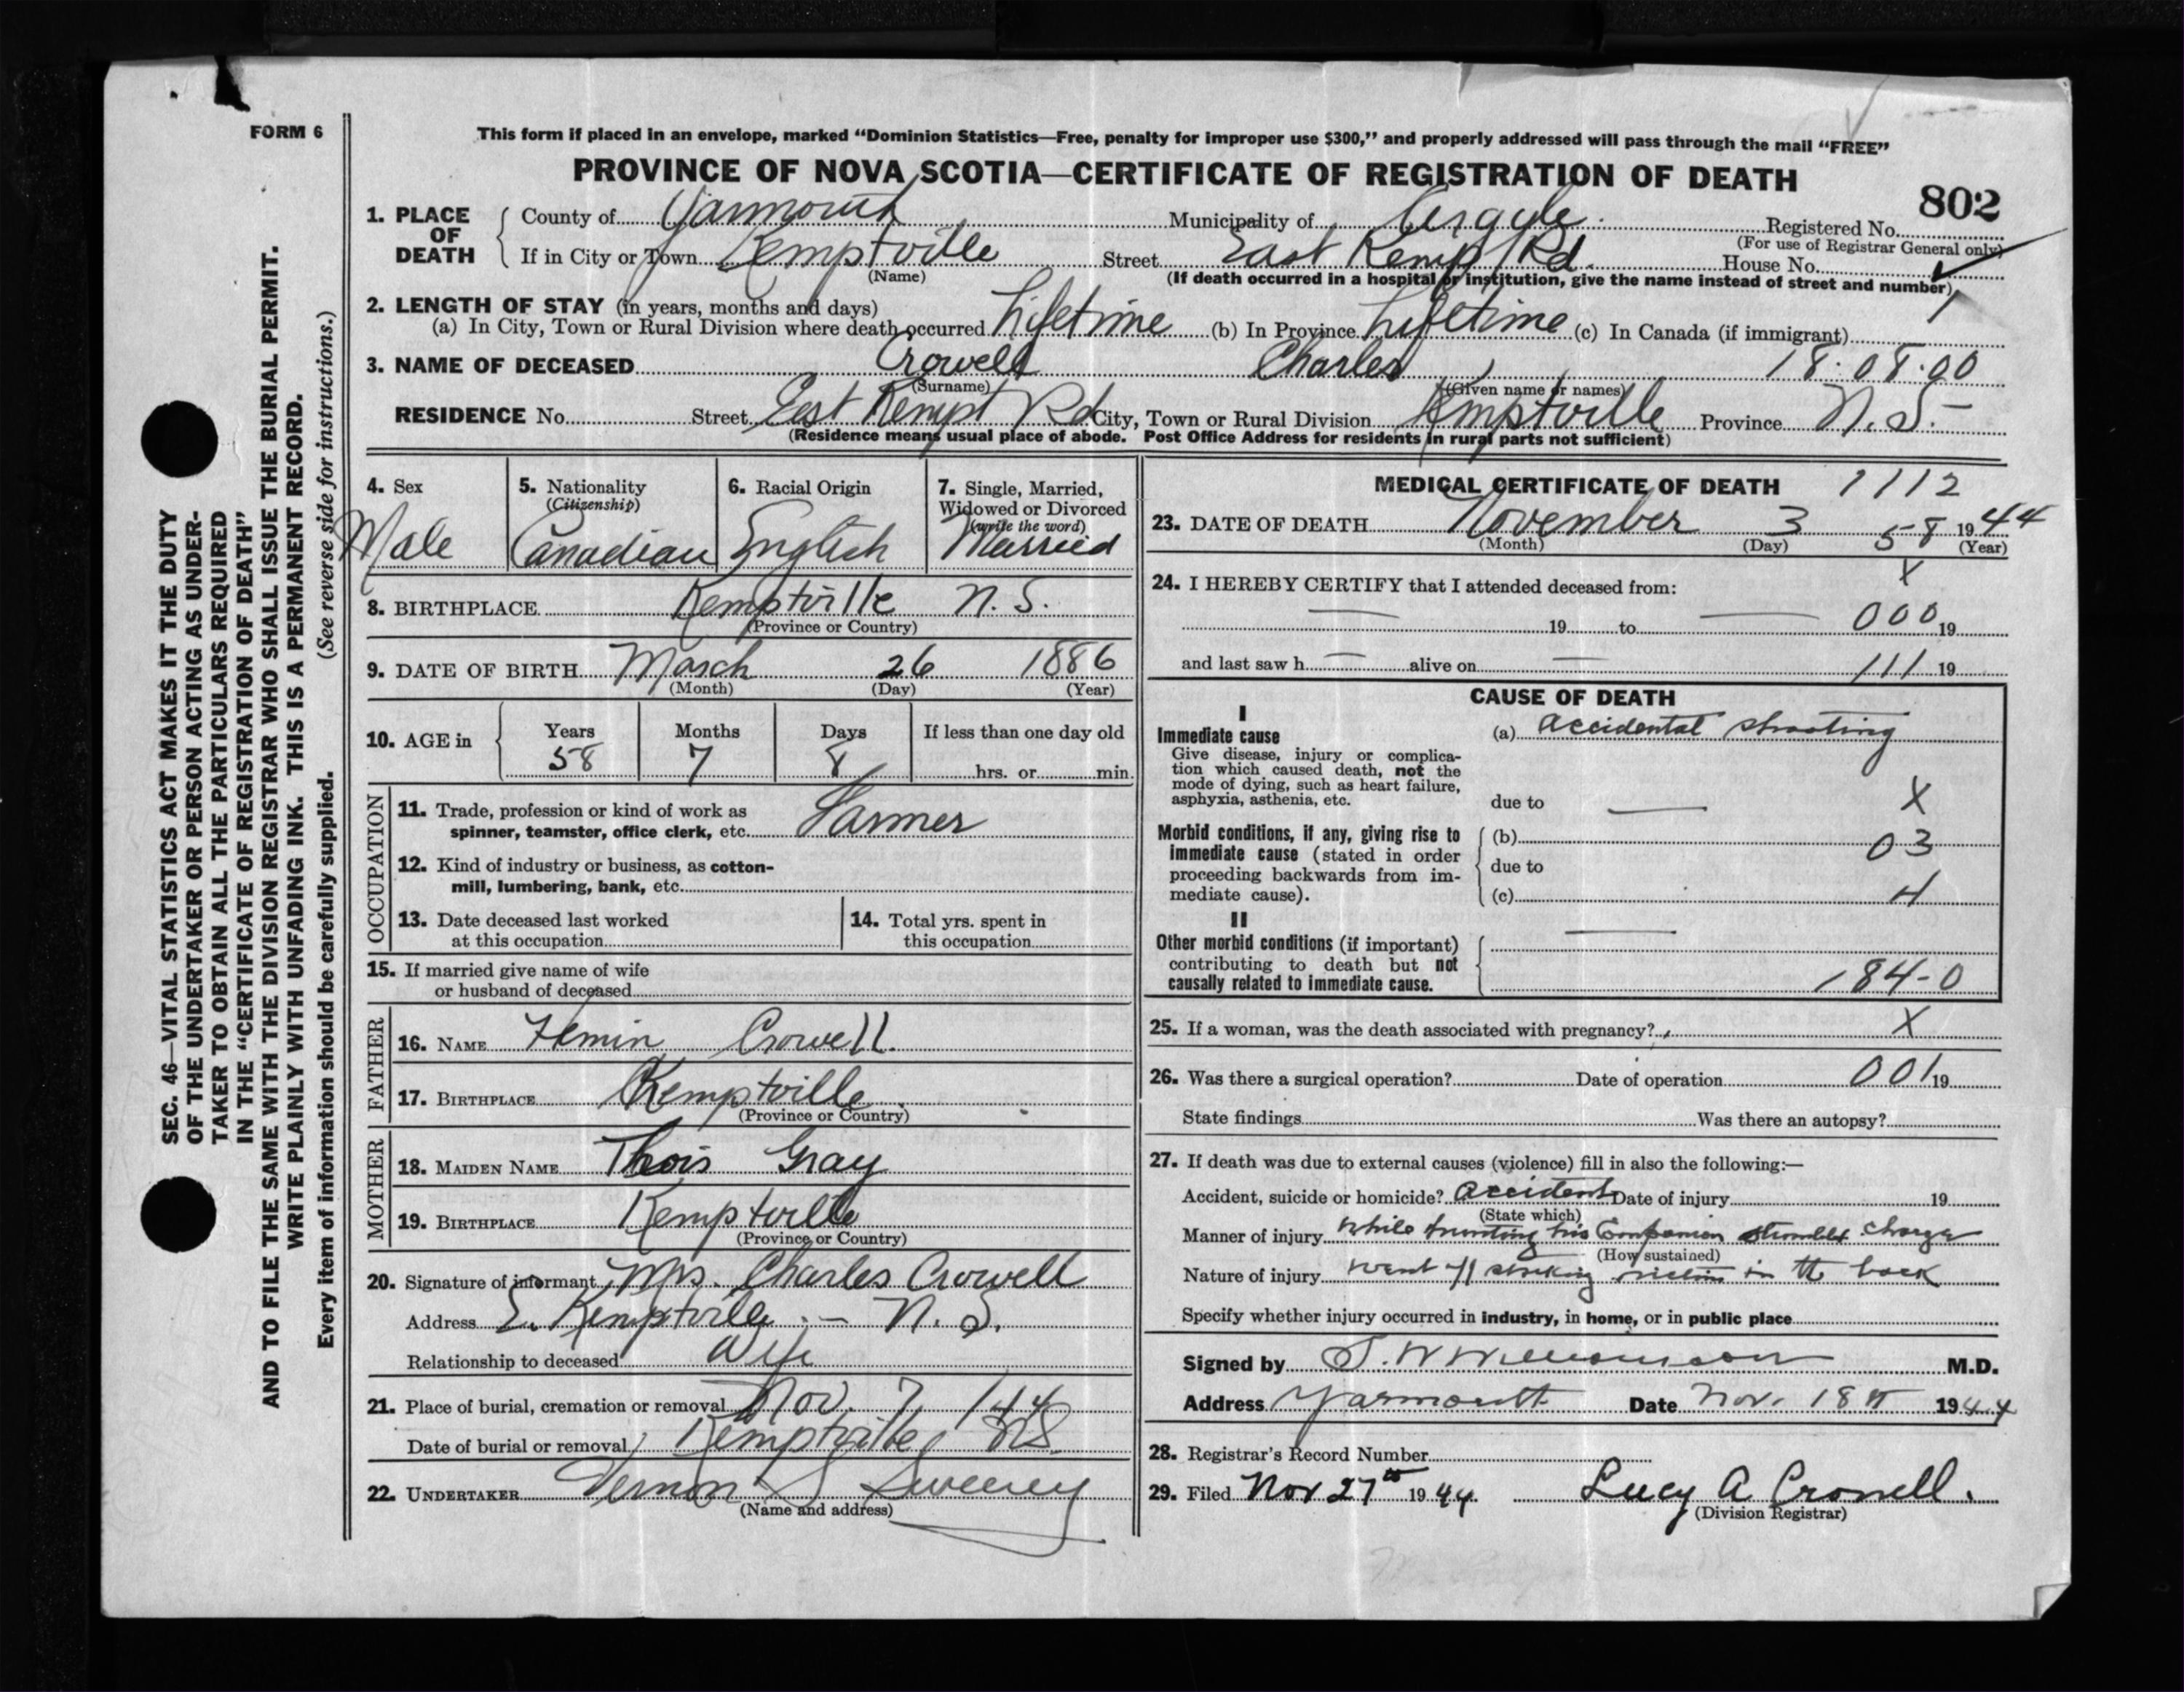 FORM 6
This form if placed in an envelope, marked “Dominion Statistics—Free, penalty for improper use $300,” and properly addressed will pass through the mail “FREE”
PROVINCE OF NOVA SCOTIA—CERTIFICATE OF REGISTRATION OF DEATH
802
1. PLACE OF DEATH
County of Yarmouth Municipality of Argyle Registered No.
(For use of Registrar General only)
If in City or Town Kemptville Street East Kempt Rd. House No.
(Name) (If death occurred in a hospital or institution, give the name instead of street and number)
2. LENGTH OF STAY (in years, months and days)
(a) In City, Town or Rural Division where death occurred Lifetime (b) In Province Lifetime (c) In Canada (if immigrant)
3. NAME OF DECEASED Crowell Charles 18.08.00
(Surname) (Given name or names)
RESIDENCE No. Street East Kempt Rd City, Town or Rural Division Kemptville Province N.S.
(Residence means usual place of abode. Post Office Address for residents in rural parts not sufficient)
4. Sex
Male
5. Nationality
(Citizenship)
Canadian
6. Racial Origin
English
7. Single, Married, Widowed or Divorced
(write the word)
Married
8. BIRTHPLACE Kemptville N.S.
(Province or Country)
9. DATE OF BIRTH March 26 1886
(Month) (Day) (Year)
10. AGE in Years Months Days If less than one day old
58 7 8 hrs. or min.
OCCUPATION
11. Trade, profession or kind of work as
spinner, teamster, office clerk, etc. Farmer
12. Kind of industry or business, as cotton-
mill, lumbering, bank, etc.
13. Date deceased last worked
at this occupation
14. Total yrs. spent in
this occupation
15. If married give name of wife
or husband of deceased
FATHER
16. NAME Crowell.
17. BIRTHPLACE Kemptville
(Province or Country)
MOTHER
18. MAIDEN NAME Gray
19. BIRTHPLACE Kemptville
(Province or Country)
20. Signature of informant Mrs. Charles Crowell
Address E. Kemptville - N.S.
Relationship to deceased Wife
21. Place of burial, cremation or removal Nov. 7, 144
Date of burial or removal Kemptville NS.
22. UNDERTAKER Vernon S Sweeney
(Name and address)
MEDICAL CERTIFICATE OF DEATH 1112
23. DATE OF DEATH November 3 58 1944
(Month) (Day) (Year)
X
24. I HEREBY CERTIFY that I attended deceased from:
— 19 to — 000 19
and last saw h — alive on — 111 19
CAUSE OF DEATH
I
Immediate cause
Give disease, injury or complica-
tion which caused death, not the
mode of dying, such as heart failure,
asphyxia, asthenia, etc.
(a) accidental shooting
due to — X
Morbid conditions, if any, giving rise to
immediate cause (stated in order
proceeding backwards from im-
mediate cause).
(b) 03
due to
(c) 4
II
Other morbid conditions (if important)
contributing to death but not
causally related to immediate cause.
—
184-0
25. If a woman, was the death associated with pregnancy? X
26. Was there a surgical operation? Date of operation 001 19
State findings Was there an autopsy?
27. If death was due to external causes (violence) fill in also the following:—
Accident, suicide or homicide? accident Date of injury 19
(State which)
Manner of injury while hunting his companion charge
(How sustained)
Nature of injury went off striking victim in the back
Specify whether injury occurred in industry, in home, or in public place
Signed by M.D.
Address Yarmouth Date Nov. 18th 1944
28. Registrar's Record Number
29. Filed Nov 27th 1944. Lucy A Crowell.
(Division Registrar)
SEC. 46—VITAL STATISTICS ACT MAKES IT THE DUTY
OF THE UNDERTAKER OR PERSON ACTING AS UNDER-
TAKER TO OBTAIN ALL THE PARTICULARS REQUIRED
IN THE “CERTIFICATE OF REGISTRATION OF DEATH”
AND TO FILE THE SAME WITH THE DIVISION REGISTRAR WHO SHALL ISSUE THE BURIAL PERMIT.
WRITE PLAINLY WITH UNFADING INK. THIS IS A PERMANENT RECORD.
Every item of information should be carefully supplied. (See reverse side for instructions.)